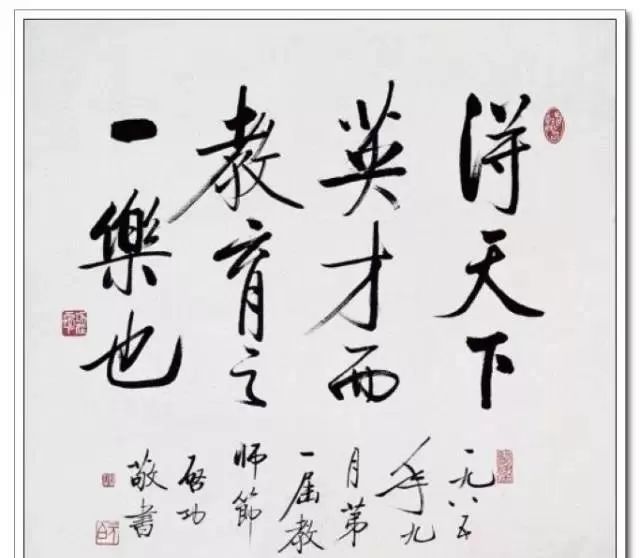 得天下
英才而
教育之
一樂也
一九八五
年九
月第
一届教
師節
啓功
敬書